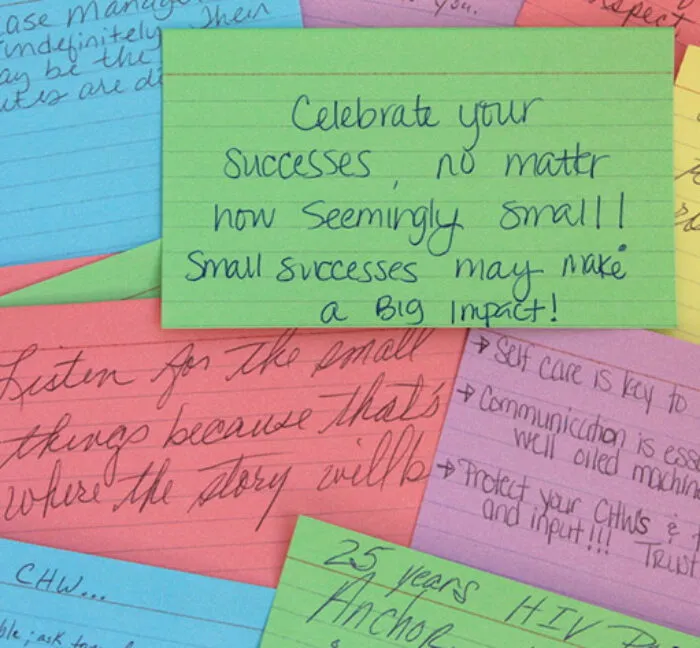 ase manag
indefinitely. Their
ay be the
utes are di
you.
spect
Celebrate your
successes, no matter
how seemingly small!!
Small successes may make
a Big Impact!
Listen for the small
things because that's
where the story will b
→ Self care is key to
→ Communication is ess
well oiled machin
→ Protect your CHWs &
and input!!! Trust
CHW...
ble; ask
25 years HIV
Anchor